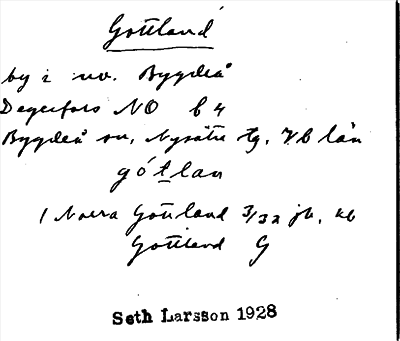 Gottland
by i nv. Bygdeå
Degerfors NO b 4
Bygdeå sn, Nysätra tg, Vb län
gó't̲lan
1 Norra Gottland 3/32 jb, kb
Gottland G
Seth Larsson 1928